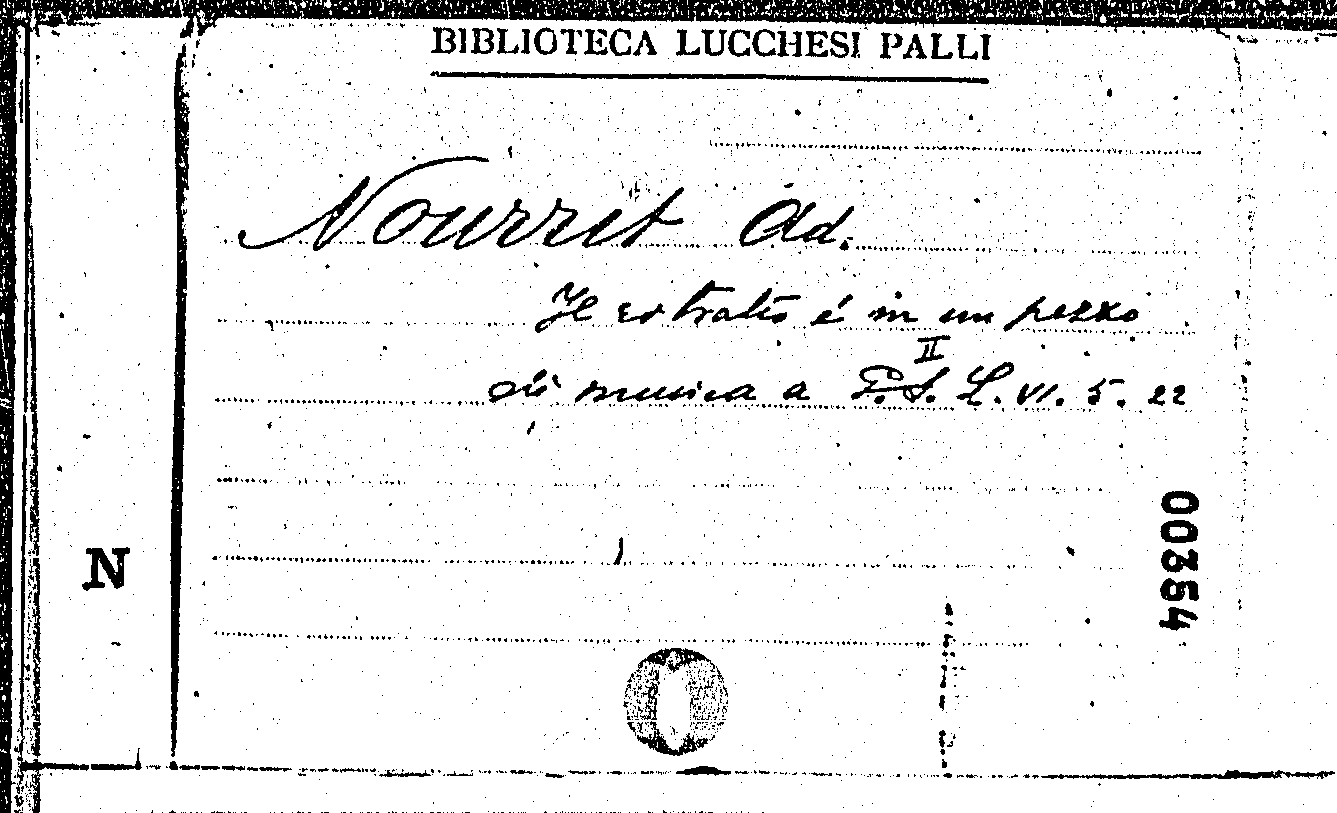 BIBLIOTECA LUCCHESI PALLI
Nourrit Ad.
Il ritratto è in un pezzo
II
di musica a P.S. L. VI. 5. 22
N
00354